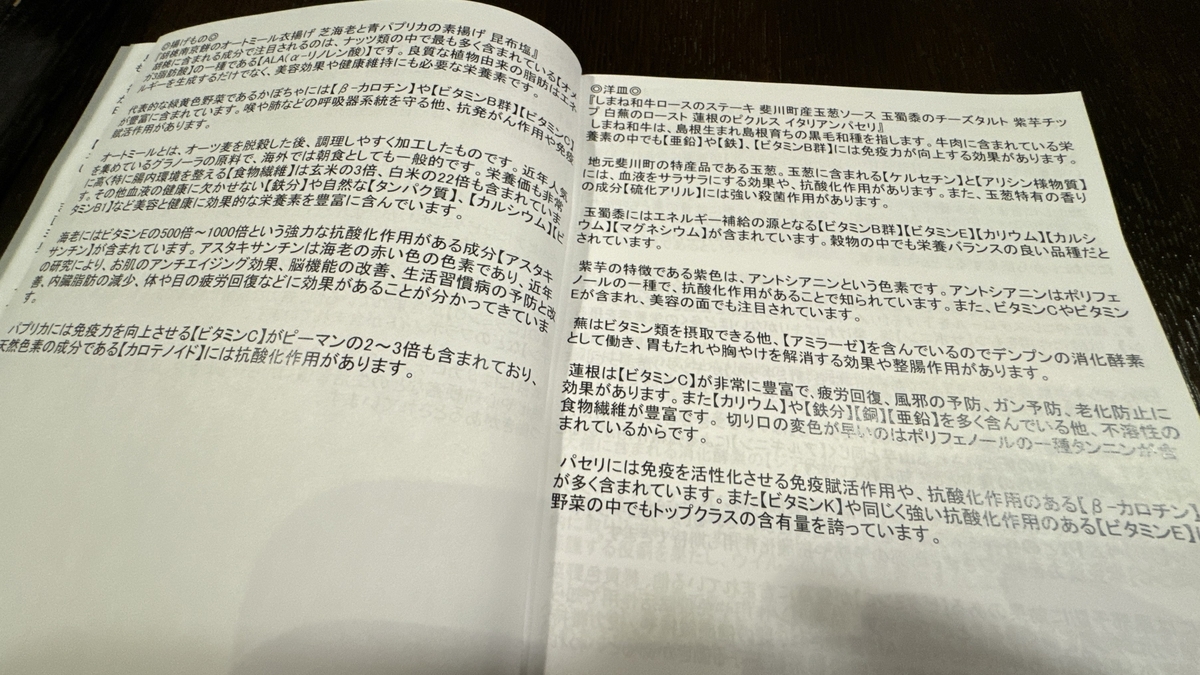 ◎揚げもの◎
『胡桃南京餅のオートミール衣揚げ 芝海老と青パプリカの素揚げ 昆布塩』
胡桃に含まれる成分で注目されるのは、ナッツ類の中で最も多く含まれている【オメ
ガ3脂肪酸】の一種である【ALA(α-リノレン酸)】です。良質な植物由来の脂肪はエネ
ルギーを生成するだけでなく、美容効果や健康維持にも必要な栄養素です。
代表的な緑黄色野菜であるかぼちゃには【β-カロチン】や【ビタミンB群】【ビタミンC】
が豊富に含まれています。喉や肺などの呼吸器系統を守る他、抗発がん作用や免疫
賦活作用があります。
オートミールとは、オーツ麦を脱穀した後、調理しやすく加工したものです。近年人気
を集めているグラノーラの原料で、海外では朝食としても一般的です。栄養価も非常
に高く特に腸内環境を整える【食物繊維】は玄米の3倍、白米の22倍も含まれていま
す。その他血液の健康に欠かせない【鉄分】や自然な【タンパク質】、【カルシウム】【ビ
タミンB1】など美容と健康に効果的な栄養素を豊富に含んでいます。
海老にはビタミンEの500倍～1000倍という強力な抗酸化作用がある成分【アスタキ
サンチン】が含まれています。アスタキサンチンは海老の赤い色の色素であり、近年
の研究により、お肌のアンチエイジング効果、脳機能の改善、生活習慣病の予防と改
善、内臓脂肪の減少、体や目の疲労回復などに効果があることが分かってきていま
す。
パプリカには免疫力を向上させる【ビタミンC】がピーマンの2～3倍も含まれており、
天然色素の成分である【カロテノイド】には抗酸化作用があります。
◎洋皿◎
『しまね和牛ロースのステーキ 斐川町産玉葱ソース 玉蜀黍のチーズタルト 紫芋チッ
プ 白蕪のロースト 蓮根のピクルス イタリアンパセリ』
しまね和牛は、島根生まれ島根育ちの黒毛和種を指します。牛肉に含まれている栄
養素の中でも【亜鉛】や【鉄】、【ビタミンB群】には免疫力が向上する効果があります。
地元斐川町の特産品である玉葱。玉葱に含まれる【ケルセチン】と【アリシン様物質】
には、血液をサラサラにする効果や、抗酸化作用があります。また、玉葱特有の香り
の成分【硫化アリル】には強い殺菌作用があります。
玉蜀黍にはエネルギー補給の源となる【ビタミンB群】【ビタミンE】【カリウム】【カルシ
ウム】【マグネシウム】が含まれています。穀物の中でも栄養バランスの良い品種だと
されています。
紫芋の特徴である紫色は、アントシアニンという色素です。アントシアニンはポリフェ
ノールの一種で、抗酸化作用があることで知られています。また、ビタミンCやビタミン
Eが含まれ、美容の面でも注目されています。
蕪はビタミン類を摂取できる他、【アミラーゼ】を含んでいるのでデンプンの消化酵素
として働き、胃もたれや胸やけを解消する効果や整腸作用があります。
蓮根は【ビタミンC】が非常に豊富で、疲労回復、風邪の予防、ガン予防、老化防止に
効果があります。また【カリウム】や【鉄分】【銅】【亜鉛】を多く含んでいる他、不溶性の
食物繊維が豊富です。切り口の変色が早いのはポリフェノールの一種タンニンが含
まれているからです。
パセリには免疫を活性化させる免疫賦活作用や、抗酸化作用のある【β-カロチン】
が多く含まれています。また【ビタミンK】や同じく強い抗酸化作用のある【ビタミンE】は
野菜の中でもトップクラスの含有量を誇っています。